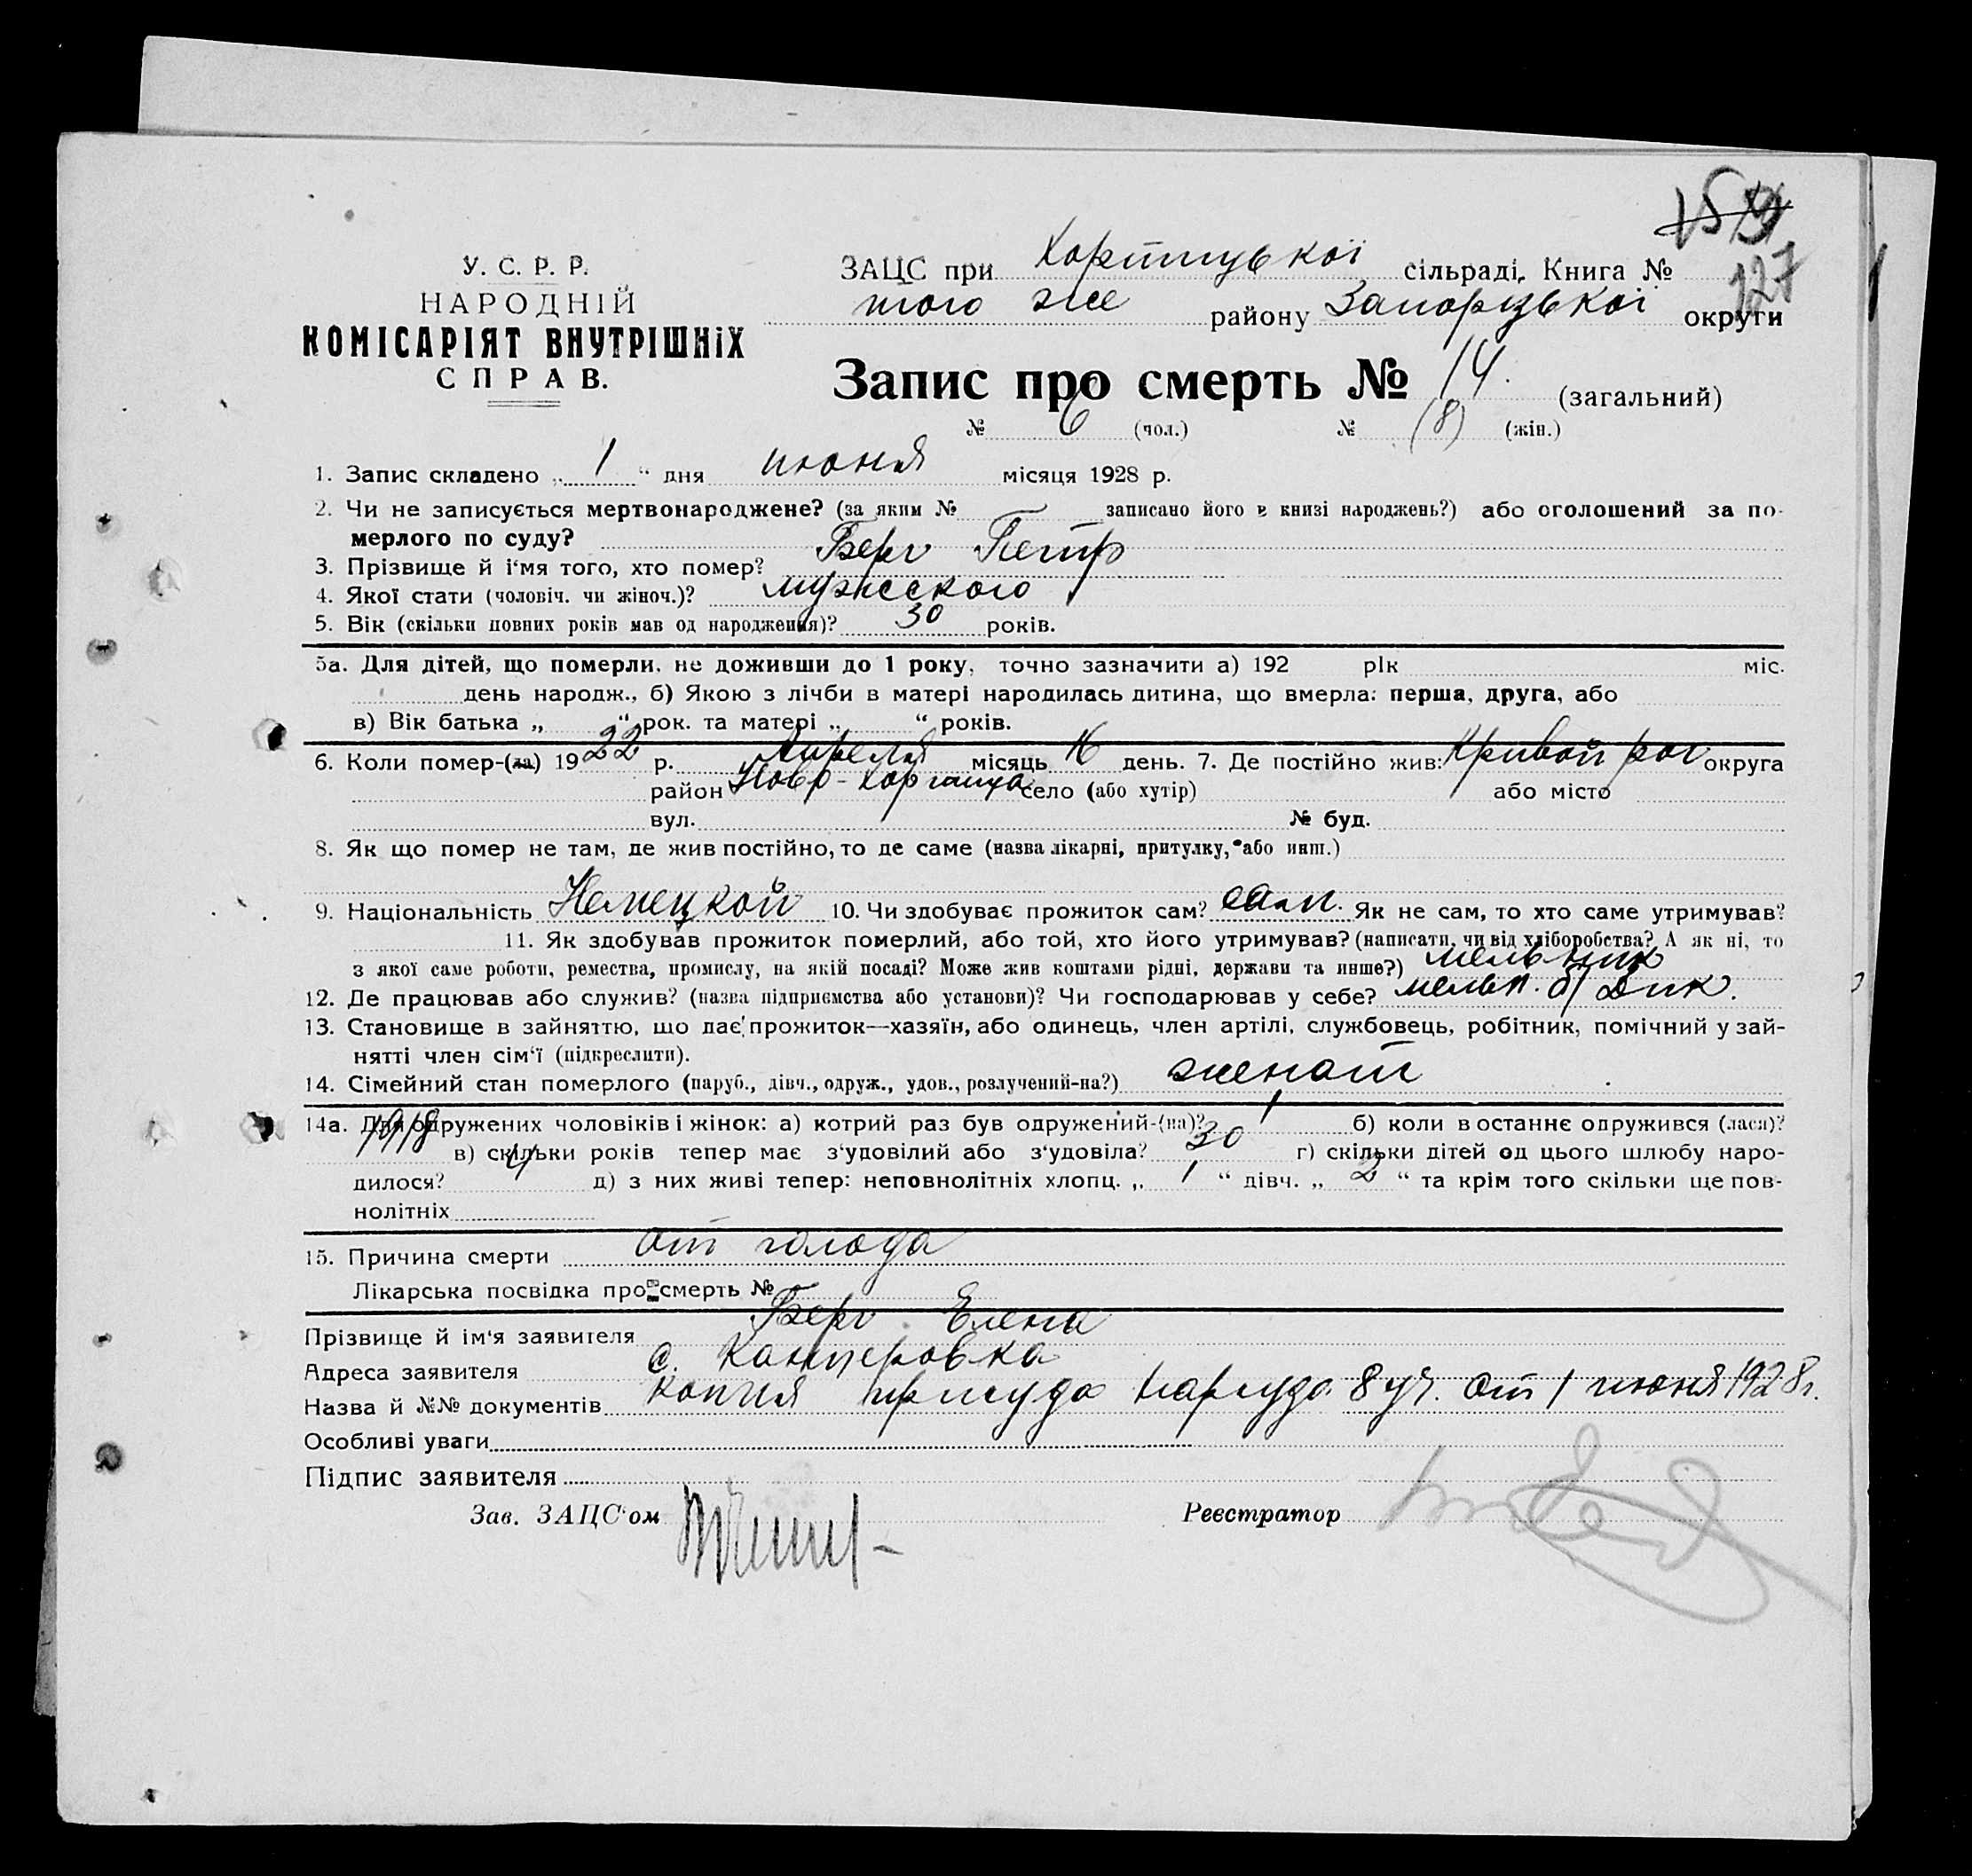 127
У. С. Р. Р.
НАРОДНІЙ
КОМІСАРІЯТ ВНУТРІШНІХ
СПРАВ.
ЗАЦС при Хортицької сільраді, Книга №
того же району Запорізької округи
Запис про смерть № 14. (загальний)
№ 6 (чол.) № (8) (жін.)
1. Запис складено „ 1 “ дня июня місяця 1928 р.
2. Чи не записується мертвонароджене? (за яким № записано його в книзі народжень?) або оголошений за по-
мерлого по суду?
3. Прізвище й і'мя того, хто помер? Берг Петр
4. Якої стати (чоловіч. чи жіноч.)? мужеского
5. Вік (скільки повних років мав од народження)? 30 років.
5а. Для дітей, що померли, не доживши до 1 року, точно зазначити а) 192 рік міс.
день народж., б) Якою з лічби в матері народилась дитина, що вмерла: перша, друга, або
в) Вік батька „ “ рок. та матері „ “ років.
6. Коли помер-(ла) 1922 р. Апреля місяць 16 день. 7. Де постійно жив: Кривой рог округа
район Ново-Хортица село (або хутір) або місто
вул. № буд.
8. Як що помер не там, де жив постійно, то де саме (назва лікарні, притулку, або инш.)
9. Національність Немецкой 10. Чи здобуває прожиток сам? сам. Як не сам, то хто саме утримував?
11. Як здобував прожиток померлий, або той, хто його утримував? (написати, чи від хліборобства? А як ні, то
з якої саме роботи, ремества, промислу, на якій посаді? Може жив коштами рідні, держави та инше?) мельник
12. Де працював або служив? (назва підприємства або установи)? Чи господарював у себе? мельн. б/ Дик.
13. Становище в зайняттю, що дає прожиток—хазяїн, або одинець, член артілі, службовець, робітник, помічний у зай-
нятті член сім'ї (підкреслити).
14. Сімейний стан померлого (паруб., дівч., одруж., удов., розлучений-на?) женат
14а. Для одружених чоловіків і жінок: а) котрий раз був одружений-(на)? 1 б) коли в останнє одружився (лася)?
1918 в) скільки років тепер має з'удовілий або з'удовіла? 30 г) скільки дітей од цього шлюбу наро-
дилося? 4 д) з них живі тепер: неповнолітніх хлопц. „ 1 “ дівч. „ 2 “ та крім того скільки ще пов-
нолітніх
15. Причина смерти от голода
Лікарська посвідка про смерть №
Прізвище й ім'я заявителя Берг Елена
Адреса заявителя с. Канцеровка
Назва й №№ документів копия присуда нарсуда 8 уч. от 1 июня 1928 г.
Особливі уваги
Підпис заявителя
Зав. ЗАЦС'ом Реєстратор